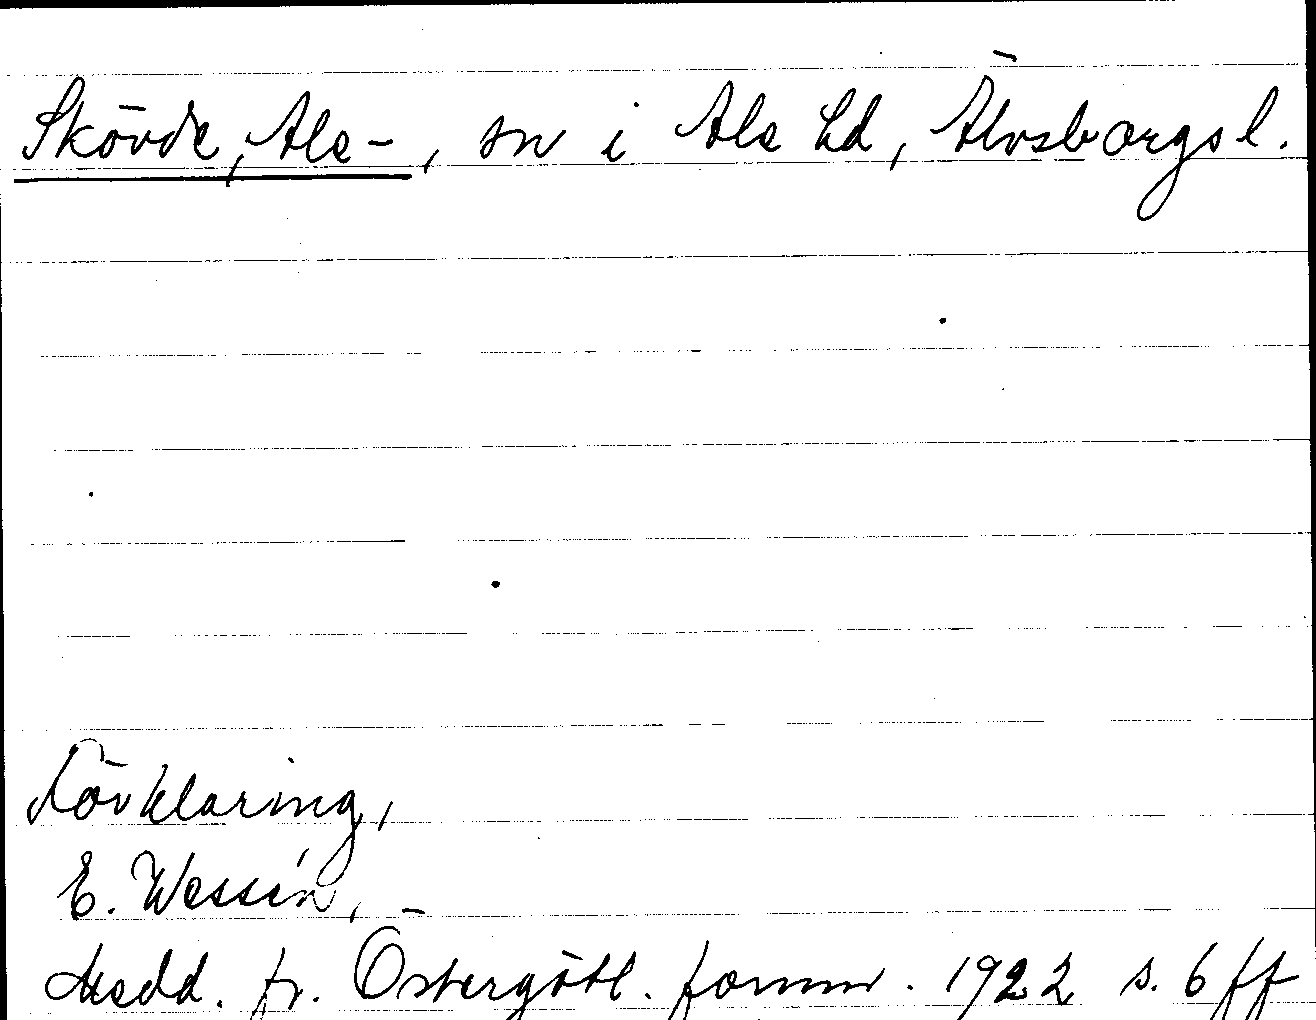 Skövde, Ale-, sn i Ale hd, Älvsborgs l.
Förklaring,
E. Wessén,
Medd. fr. Östergötl. fornm. 1922 s. 6 ff